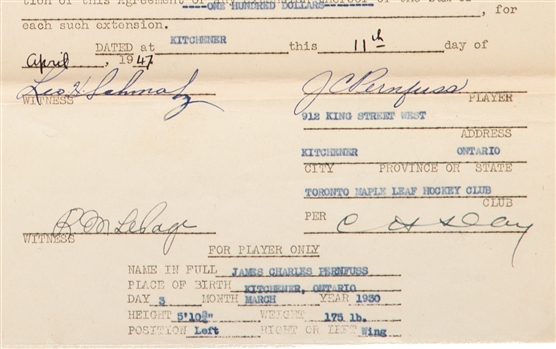 tion of this Agreement
----ONE HUNDRED DOLLARS-------, for
each such extension.
DATED at KITCHENER this 11th day of
April, 1947
Leo H Schmalz J C Pernfuss
WITNESS PLAYER
912 KING STREET WEST
ADDRESS
KITCHENER ONTARIO
CITY PROVINCE OR STATE
TORONTO MAPLE LEAF HOCKEY CLUB
CLUB
R M LePage PER C H S Day
WITNESS
FOR PLAYER ONLY
NAME IN FULL JAMES CHARLES PERNFUSS
PLACE OF BIRTH KITCHENER, ONTARIO
DAY 3 MONTH MARCH YEAR 1930
HEIGHT 5'10¾" WEIGHT 175 lb.
POSITION Left RIGHT OR LEFT Wing